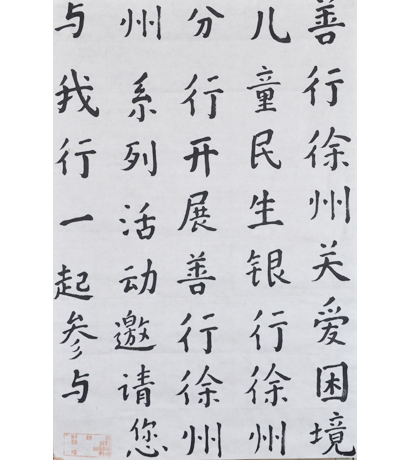 善行徐州关爱困境
儿童民生银行徐州
分行开展善行徐州
州系列活动邀请您
与我行一起参与